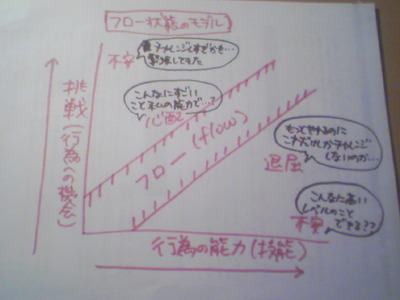 フロー状態のモデル
不安
チャレンジしすぎかも…
緊張してきた
こんなにすごい
こと私の能力で…?
心配
フロー (flow)
もっとやれるのに
これだけしかチャレンジ
しないのか…
退屈
こんな高い
レベルのこと
できる??
不安
挑戦(行為への機会)
行為の能力(技能)